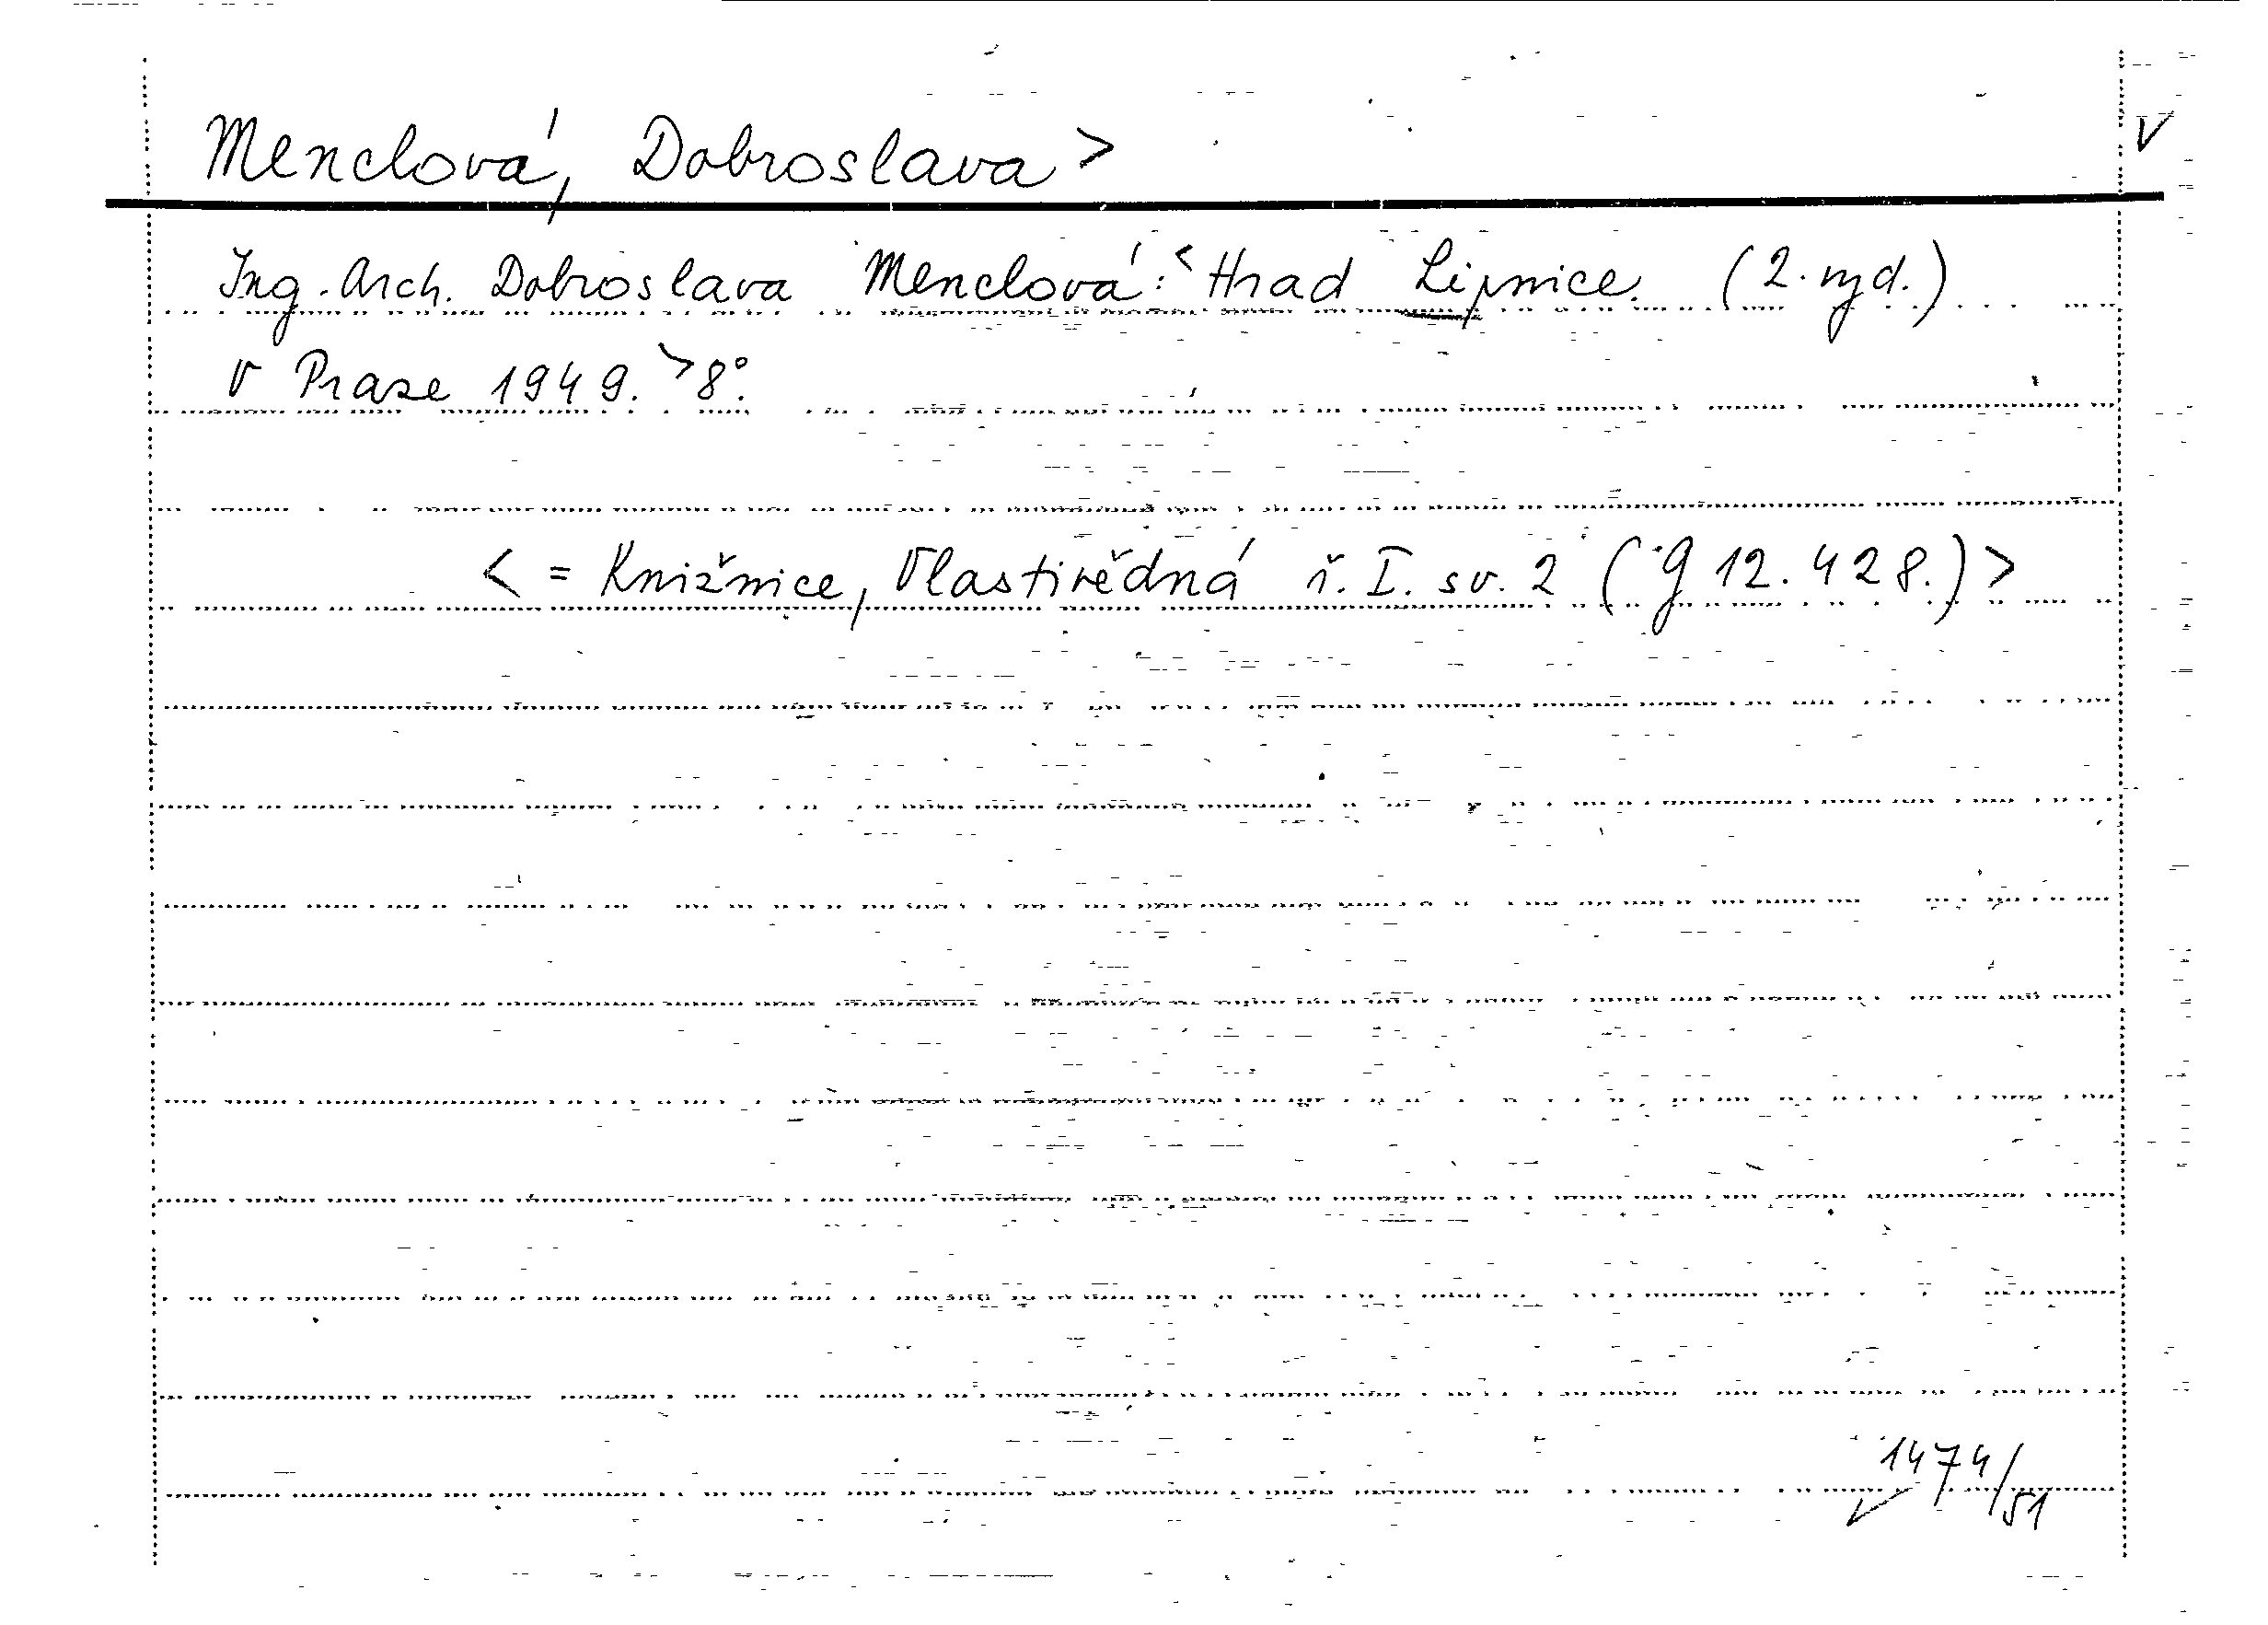 Menclová, Dobroslava > V
Ing. Arch. Dobroslava Menclová: < Hrad Lipnice. (2. vyd.)
V Praze 1949. > 8°.
< = Knižnice, Vlastivědná ř. I. sv. 2 (g 12.428.) >
1474/51